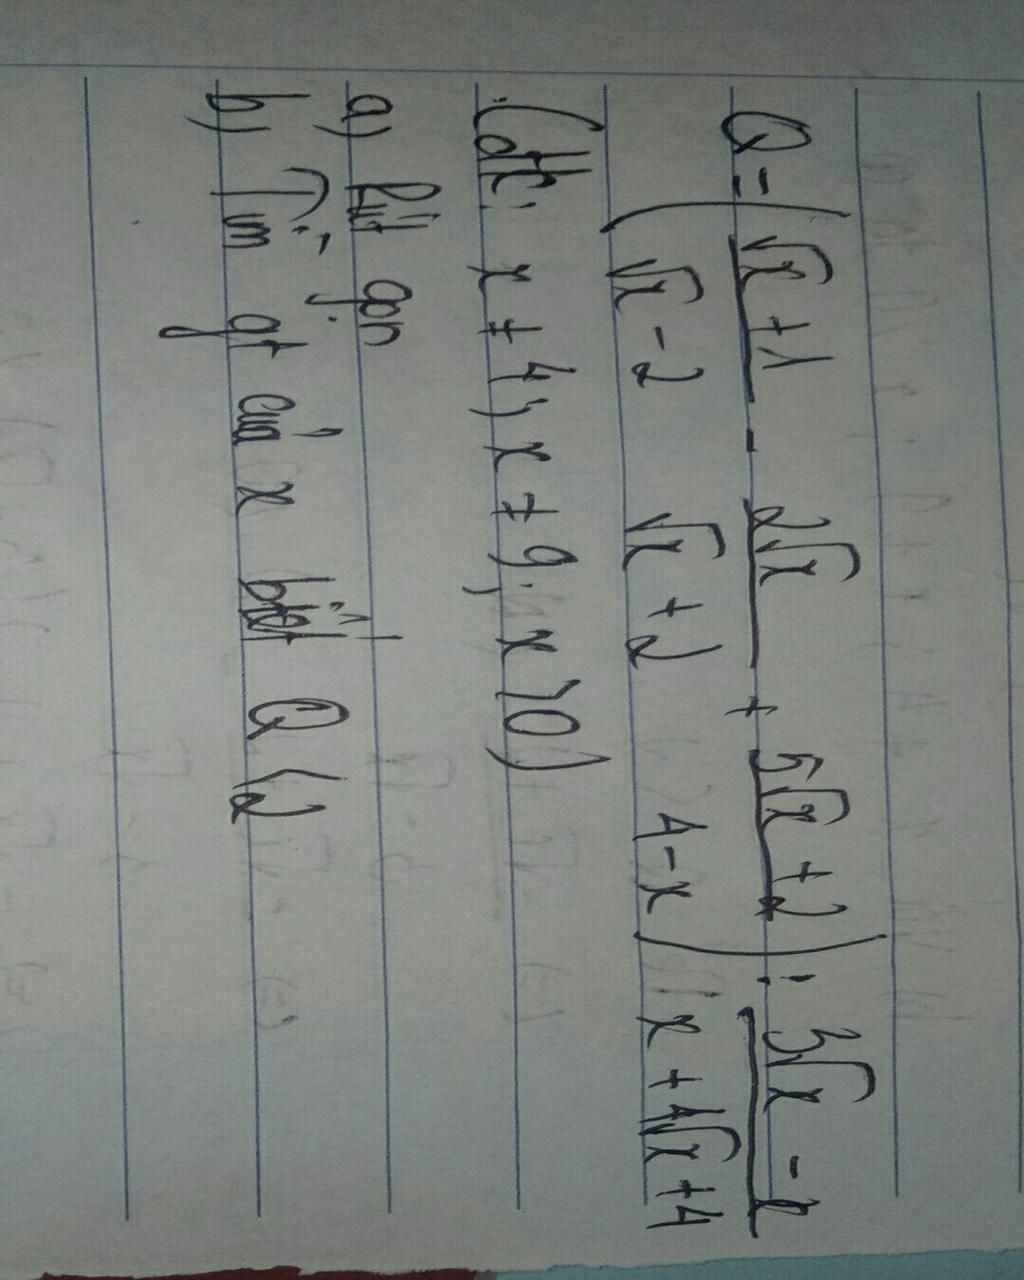 Q = ( (√x + 1)/(√x - 2) - 2√x/(√x + 2) + (5√x + 2)/(4 - x) ) : (3√x - x)/(x + 4√x + 4)
(đk: x ≠ 4; x ≠ 9; x > 0)
a) Rút gọn
b) Tìm gt của x biết Q < 2